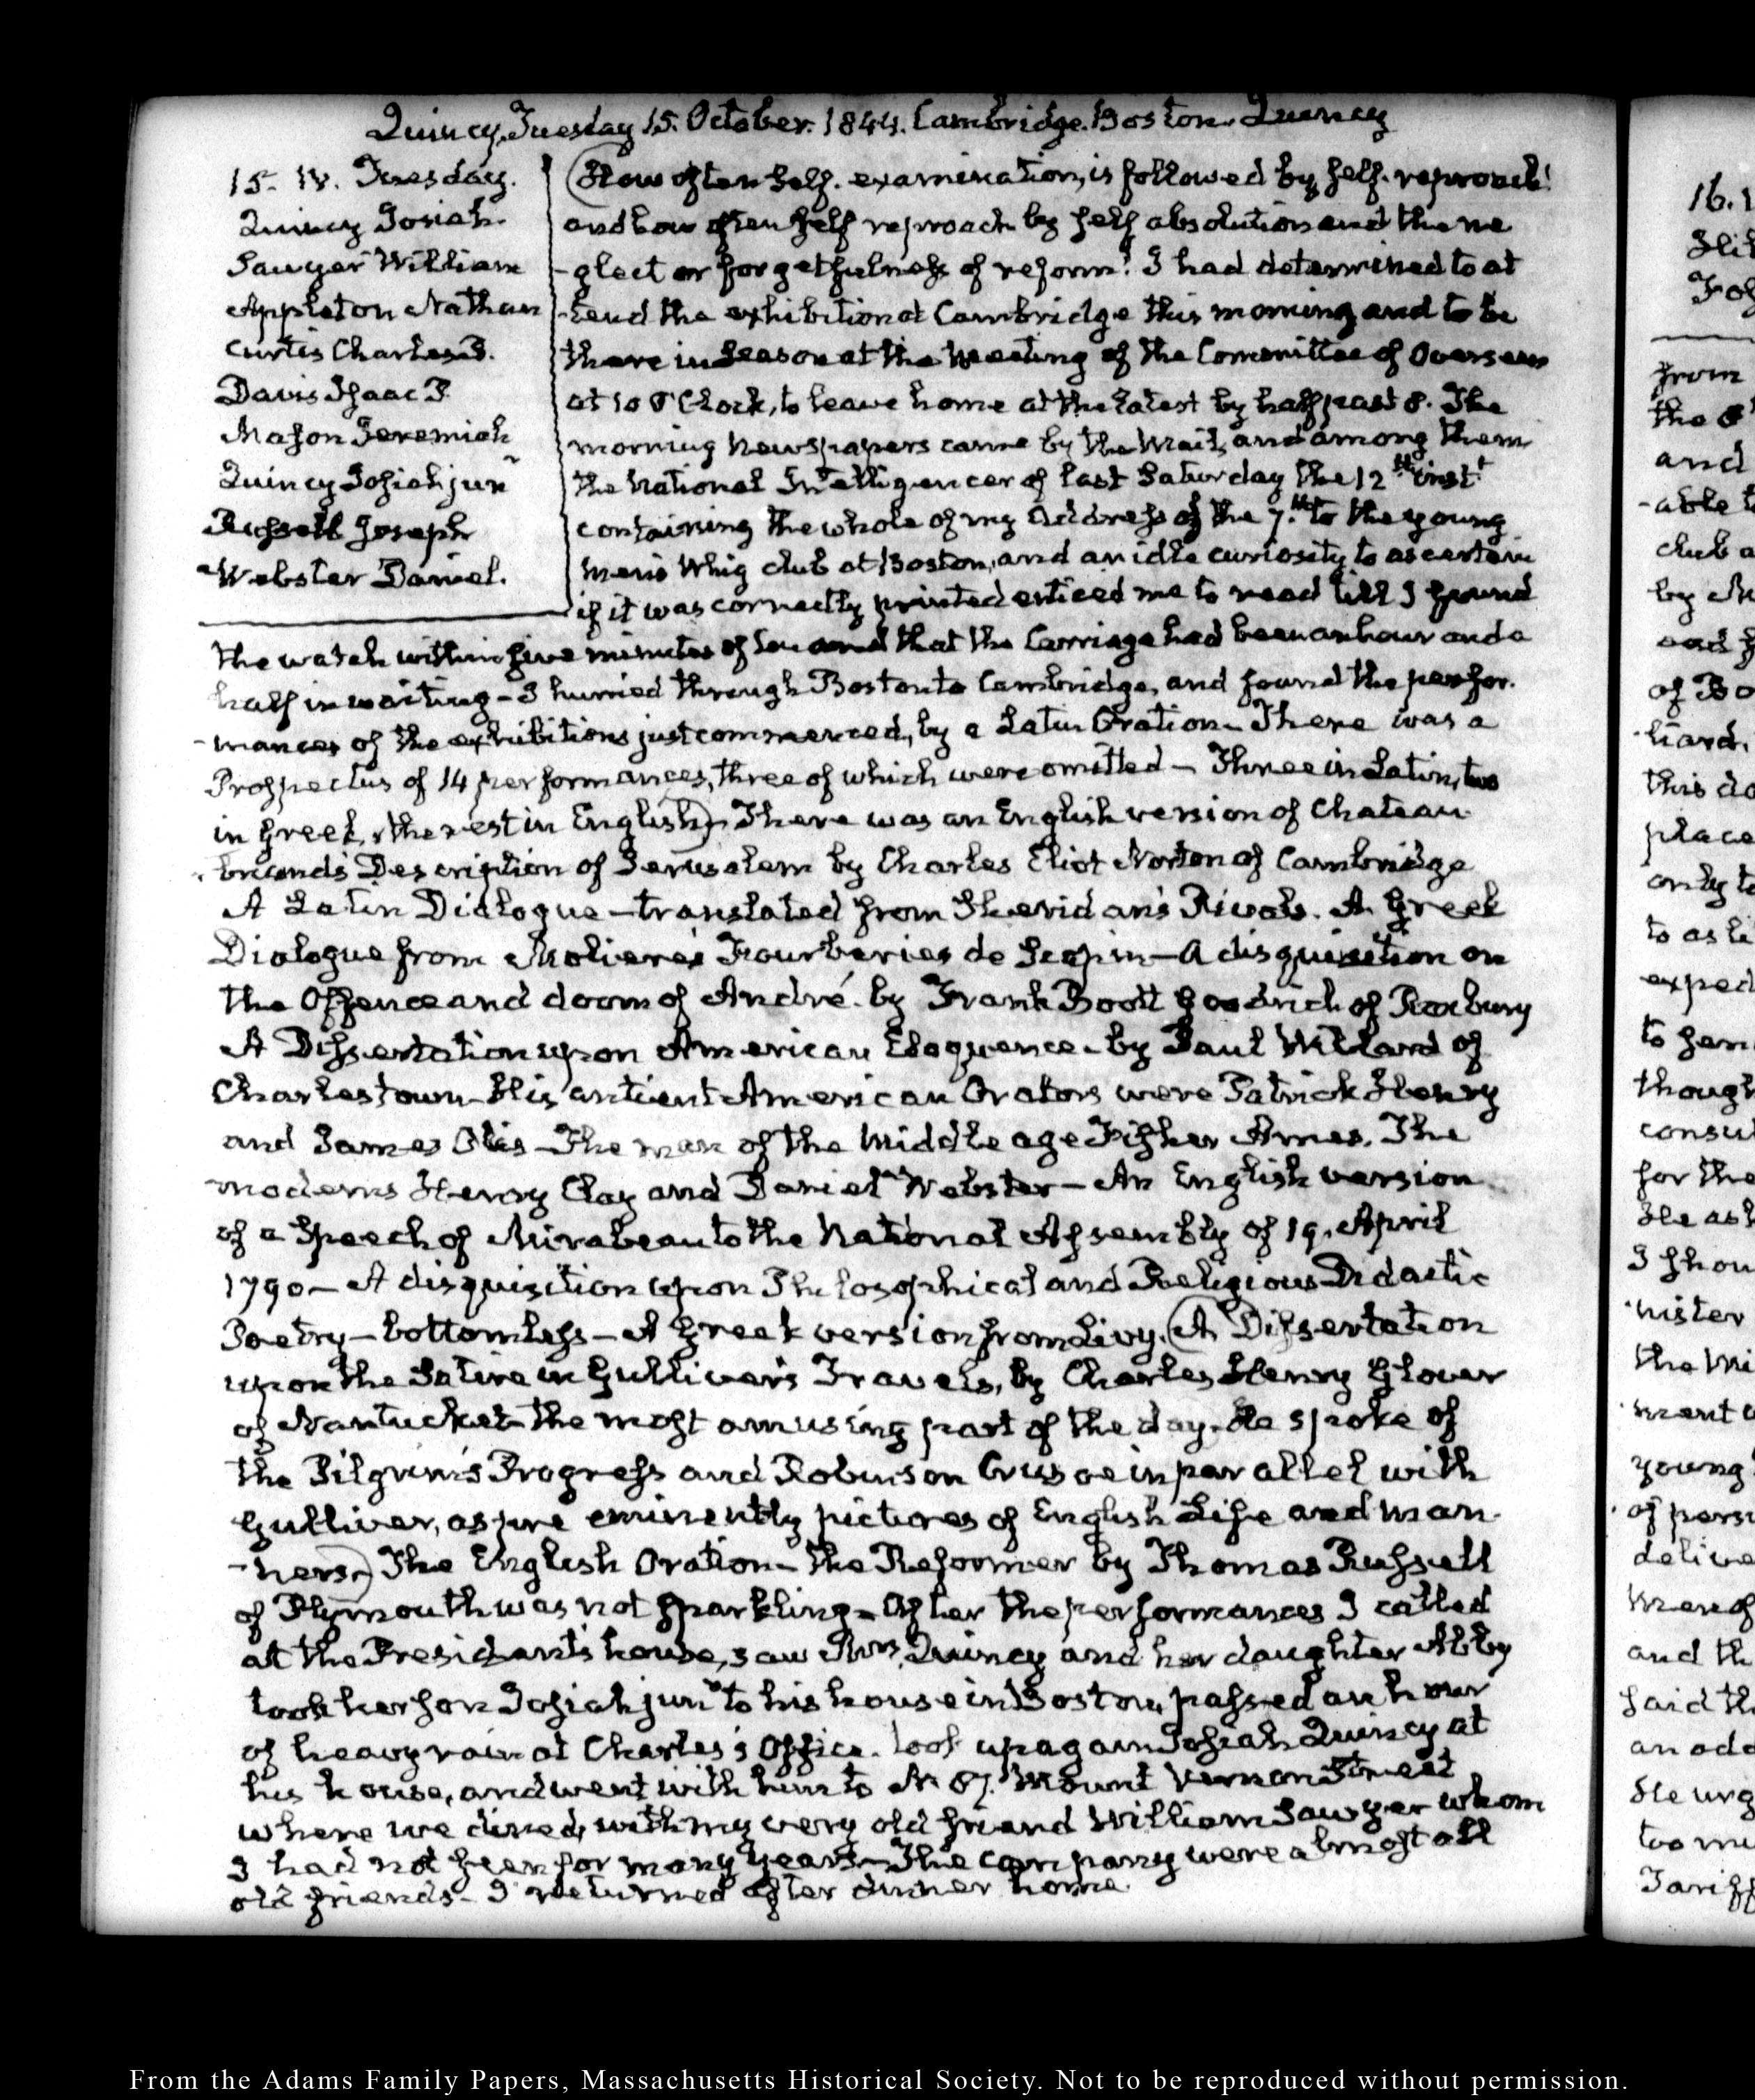 Quincy, Tuesday 15. October. 1844. Cambridge. Boston. Quincy
15. IV. Tuesday.
Quincy Josiah.
Sawyer William
Appleton Nathan
Curtis Charles P.
Davis Isaac P.
Mason Jeremiah
Quincy Josiah jun
Russell Joseph
Webster Daniel.
How often self-examination, is followed by self-reproach!
and how often self reproach by self absolution and the ne
-glect or forgetfulness of reform! I had determined to at
-tend the exhibition at Cambridge this morning and to be
there in season at the meeting of the Committee of Overseers
at 10 O'Clock, to leave home at the latest by half past 8. The
morning Newspapers came by the Mail, and among them
the National Intelligencer of last Saturday the 12th inst.t
containing the whole of my Address of the 7.th to the young
men's Whig club at Boston, and an idle curiosity to ascertain
if it was correctly printed enticed me to read till I found
the watch within five minutes of ten and that the Carriage had been an hour and a
half in waiting - I hurried through Boston to Cambridge, and found the perfor.
-mances of the exhibitions just commenced, by a Latin Oration - There was a
Prospectus of 14 performances, three of which were omitted - Three in Latin, two
in Greek, the rest in English) - There was an English version of Chateau
briand's Description of Jerusalem by Charles Eliot Norton of Cambridge
A Latin Dialogue - translated from Sheridan's Rivals. A Greek
Dialogue from Moliere's Fourberies de Scapin - A disquisition on
the Offence and doom of André - by Frank Boott Goodrich of Roxbury
A Dissertation upon American Eloquence - by Paul Willard of
Charlestown - His antient American Orators were Patrick Henry
and James Otis - The man of the middle age Fisher Ames. The
moderns Henry Clay and Daniel Webster - An English version
of a Speech of Mirabeau to the National Assembly of 19. April
1790 - A disquisition upon Philosophical and Religious Didactic
Poetry - bottomless - A Greek version from Livy. (A Dissertation
upon the Satire in Gulliver's Travels, by Charles Henry Glover
of Nantucket - the most amusing part of the day. He spoke of
the Pilgrim's Progress and Robinson Crusoe in parallel with
Gulliver, as pre eminently pictures of English Life and man-
-ners.) The English Oration - The Reformer by Thomas Russell
of Plymouth was not sparkling - After the performances I called
at the President's house, saw Mrs. Quincy and her daughter Abby
took her son Josiah junr to his house in Boston, passed an hour
of heavy rain at Charles's Office. took up again Josiah Quincy at
his house, and went with him to N. 57. Mount Vernon Street
where we dined, with my very old friend William Sawyer whom
I had not seen for many years - The company were almost all
old friends - I returned after dinner home.
16.
from
the
and
-able
club a
of Bo
-hard.
this do
place
only to
to as
exped
to
though
consu
for the
He as
I shou
-nister
the Mi
-ment
young
of pers
delive
men of
and th
said th
an odd
He urg
too mu
Tariff
From the Adams Family Papers, Massachusetts Historical Society. Not to be reproduced without permission.